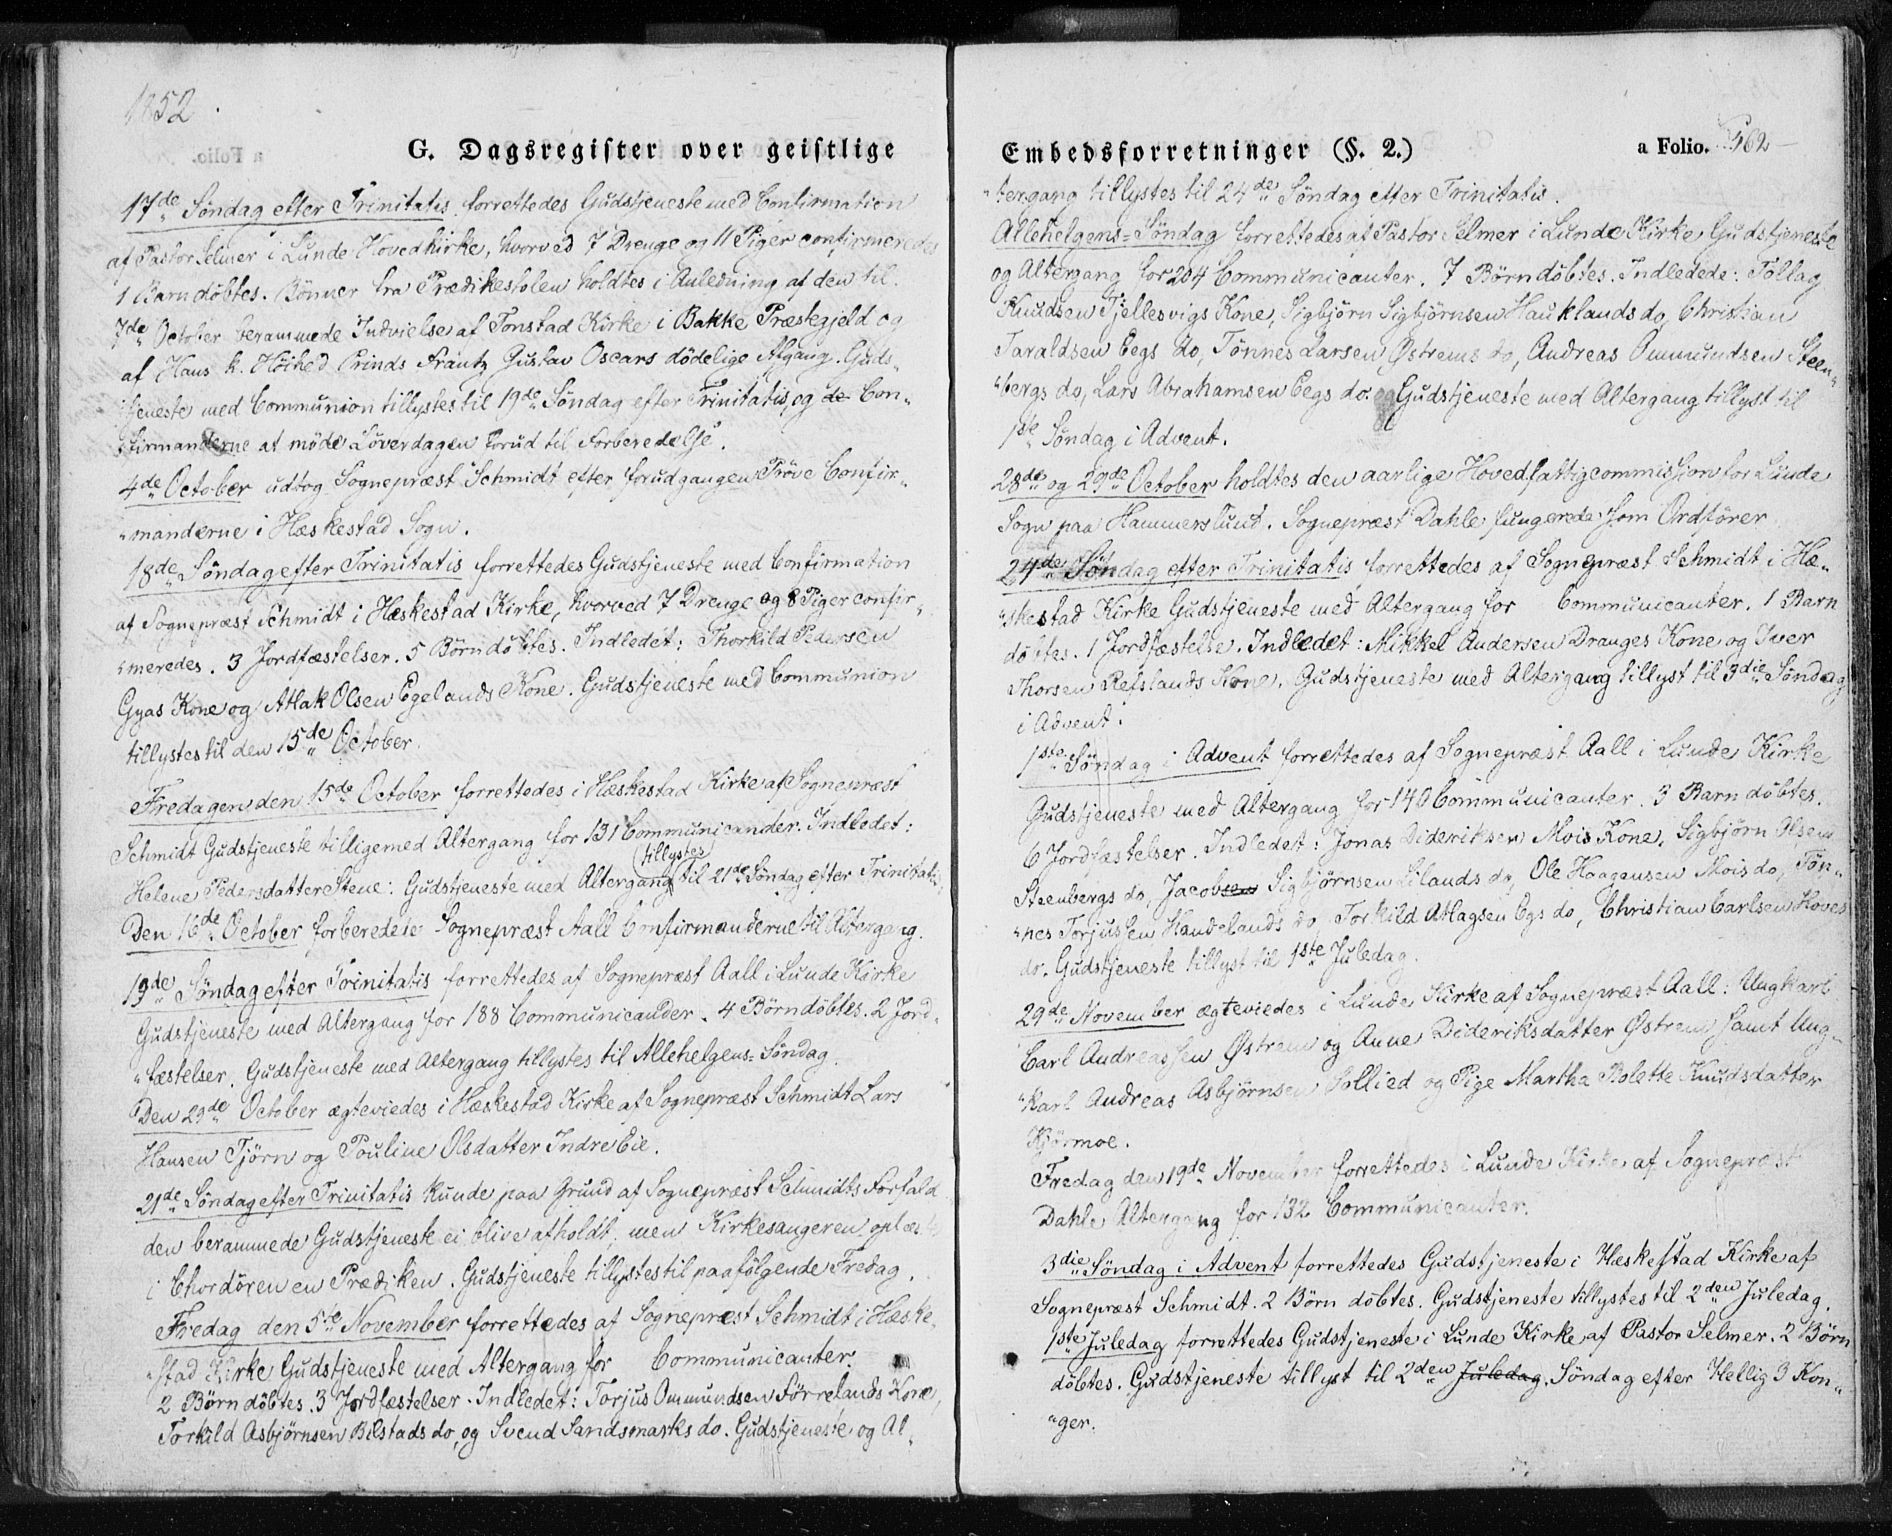 1852.
G. Dagsregister over geistlige
17de Søndag efter Trinitatis forrettedes Gudstjeneste med Confirmation
af Pastor Selmer i Lunde Hovedkirke, hvorved 7 Drenge og 11 Piger confirmeredes
1 Barn döbtes. Bønner fra Prædikestolen holdtes i Anledning af den til
7de October berammede Indvielse af Tonstad Kirke i Bakke Præstegjeld og
af Hans k. Höihed Prinds Frantz Gustav Oscars dödelige Afgang. Guds-
tjeneste med Communion tillystes til 19de Søndag efter Trinitatis, og de Con„
„firmanderne at möde Löverdagen forud til Forberedelse.
4de October udtog Sognepræst Schmidt efter forudgangen Pröve Confir„
„manderne i Hæskestad Sogn.
18de Söndag efter Trinitatis forrettedes Gudstjeneste med Confirmation
af Sognepræst Schmidt i Hæskestad Kirke, hvorved 7 Drenge og 8 Piger confir„
„meredes. 3 Jordfæstelser. 5 Börn döbtes. Indledet: Thorkild Pedersen
Gyas Kone og Atlak Olsen Egelands Kone. Gudstjeneste med Communion
tillystes til den 15de October.
Fredagen den 15de October forrettedes i Hæskestad Kirke af Sognepræst
Schmidt Gudstjeneste tilligemed Altergang for 131 Communicander. Indledet:
Helene Pedersdatter Stene: Gudstjeneste med Altergang tillystes til 21de Söndag efter Trinitatis.
Den 16de October forberedete Sognepræst Aall Confirmanderne til Altergang.
19de Söndag efter Trinitatis forrettedes af Sognepræst Aall i Lunde Kirke
Gudstjeneste med Altergang for 188 Communicander. 4 Börn döbtes. 2 Jord„
„fæstelser. Gudstjeneste med Altergang tillystes til Allehelgens-Söndag.
Den 29de October ægteviedes i Hæskestad Kirke af Sognepræst Schmidt Lars
Hansen Tjörn og Pouline Olsdatter Indre Eie.
21de Söndag efter Trinitatis kunde paa Grund af Sognepræst Schmidts Forfald
den berammede Gudstjeneste ei blive afholdt, men Kirkesangeren oplæste
i Chordören en Prædiken. Gudstjeneste tillystes til paafölgende Fredag.
Fredag den 5te November forrettedes af Sognepræst Schmidt i Hæske„
„stad Kirke Gudstjeneste med Altergang for Communicanter.
2 Börn döbtes. 3 Jordfæstelser. Indledet: Torjus Ommundsen Förrelands Kone,
Torkild Asbjörnsen Bilstads do, og Svend Sandsmarks do. Gudstjeneste og Al„
Embedsforretninger (§. 2.)
a Folio. 562
„tergang tillystes til 24de Söndag efter Trinitatis.
Allehelgens-Söndag forrettedes af Pastor Selmer i Lunde Kirke Gudstjeneste
og Altergang for 204 Communicanter. 7 Börn döbtes. Indledede: Tollag
Knudsen Tjellesvigs Kone, Sigbjörn Sigbjörnsen Hauklands do, Christian
Taraldsen Eegs do, Tönnes Larsen Østrems do, Andreas Ommundsen Steen„
„bergs do, Lars Abrahamsen Eegs do. og Gudstjeneste med Altergang tillyst til
1ste Söndag i Advent.
28de og 29de October holdtes den aarlige Hovedfattigcommission for Lunde
Sogn paa Hammerslund. Sognepræst Dahle fungerede som Ordförer
24de Söndag efter Trinitatis forrettedes af Sognepræst Schmidt i Hæ„
„skestad Kirke Gudstjeneste med Altergang for Communicanter. 1 Barn
döbtes. 1 Jordfæstelse. Indledet: Mikkel Andersen Dranges Kone og Iver
Thorsen Refslands Kone. Gudstjeneste med Altergang tillyst til 3die Söndag
i Advent.
1ste Söndag i Advent forrettedes af Sognepræst Aall i Lunde Kirke
Gudstjeneste med Altergang for 140 Communicanter. 3 Barn döbtes.
6 Jordfæstelser. Indledet: Jonas Dideriksen Mois Kone, Sigbjörn Olsen
Steenbergs do, Jacobsen Sigbjörnsen Lilands do, Ole Haagensen Mois do, Tön„
„nes Torjussen Handelands do, Torkild Atlagsen Egs do, Christian Carlsen Hoves
do. Gudstjeneste tillyst til 1ste Juledag.
29de November ægteviedes i Lunde Kirke af Sognepræst Aall: Ungkarl
Carl Andreassen Østrem og Anne Dideriksdatter Østrem samt Ung„
„karl Andreas Asbjörnsen Sollied og Pige Martha Bolette Knudsdatter
Kjörmoe.
Fredag den 19de November forrettedes i Lunde Kirke af Sognepræst
Dahle Altergang for 132 Communicanter.
3die Söndag i Advent forrettedes Gudstjeneste i Hæskestad Kirke af
Sognepræst Schmidt. 2 Börn döbtes. Gudstjeneste tillystes til 2den Juledag.
1ste Juledag forrettedes Gudstjeneste i Lunde Kirke af Pastor Selmer. 2 Börn
döbtes. Gudstjeneste tillyst til 2den Juledag. Söndag efter Hellig 3 Kon„
„ger.